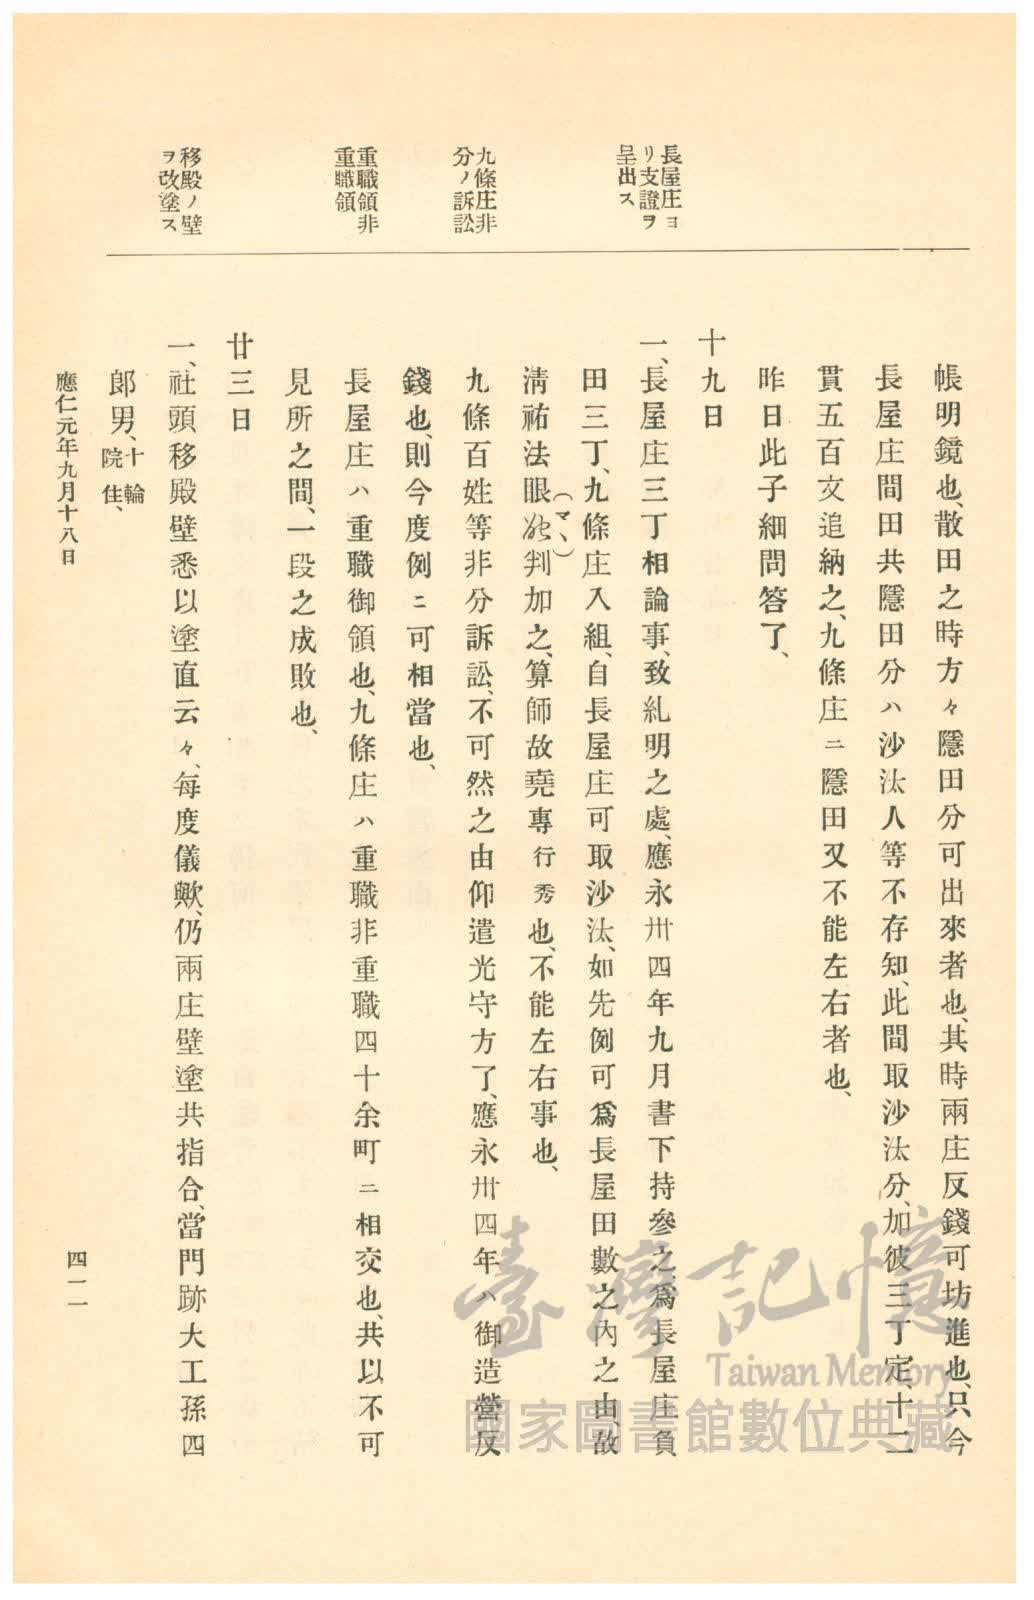 長屋庄ヨ
リ支證ヲ
呈出ス
九條庄非
分ノ訴訟
重職領非
重職領
移殿ノ壁
ヲ改塗ス
帳明鏡也、散田之時方々隱田分可出來者也、其時兩庄反錢可坊進也、只今
長屋庄間田共隱田分ハ沙汰人等不存知、此間取沙汰分、加彼三丁定、十二
貫五百文追納之、九條庄ニ隱田又不能左右者也、
昨日此子細問答了、
十九日
一、長屋庄三丁相論事、致糺明之處、應永卅四年九月書下持參之、爲長屋庄負
田三丁、九條庄入組、自長屋庄可取沙汰、如先例可爲長屋田數之內之由、故
淸祐法眼(マヽ)判加之、算師故堯專行秀也、不能左右事也、
九條百姓等非分訴訟、不可然之由仰遣光守方了、應永卅四年ハ御造營反
錢也、則今度例ニ可相當也、
長屋庄ハ重職御領也、九條庄ハ重職非重職四十余町ニ相交也、共以不可
見所之間、一段之成敗也、
廿三日
一、社頭移殿壁悉以塗直云々、每度儀歟、仍兩庄壁塗共指合、當門跡大工孫四
郞男、十輪院住、
應仁元年九月十八日
四一一
臺灣記憶
Taiwan Memory
國家圖書館數位典藏